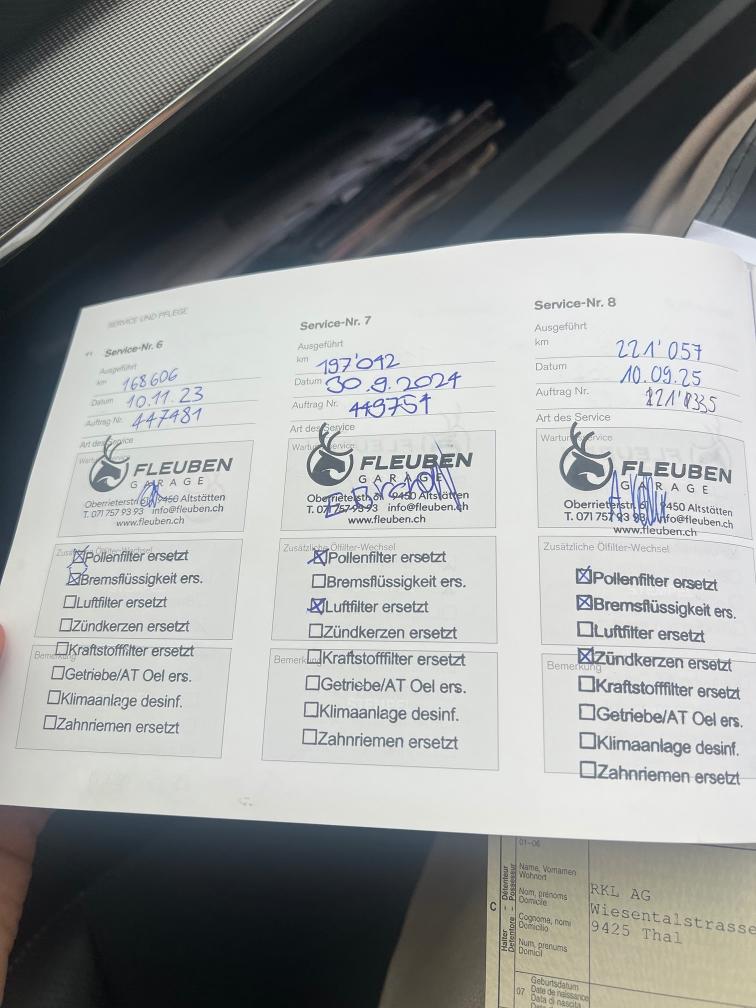 SERVICE UND PFLEGE
Service-Nr. 6
Ausgeführt
km 168606
Datum 10.11.23
Auftrag Nr. 447481
Art des Service
FLEUBEN
GARAGE
Oberrieterstr. 9450 Altstätten
T. 071 757 93 93 info@fleuben.ch
www.fleuben.ch
Zusätzliche Ölfilter-Wechsel
☒Pollenfilter ersetzt
☒Bremsflüssigkeit ers.
☐Luftfilter ersetzt
☐Zündkerzen ersetzt
☐Kraftstofffilter ersetzt
Bemerkung
☐Getriebe/AT Oel ers.
☐Klimaanlage desinf.
☐Zahnriemen ersetzt
Service-Nr. 7
Ausgeführt
km 197'042
Datum 30.9.2024
Auftrag Nr.
Art des Service
Wartungsservice
FLEUBEN
GARAGE
Oberrieterstr. 9450 Altstätten
T. 071 757 93 93 info@fleuben.ch
www.fleuben.ch
Zusätzliche Ölfilter-Wechsel
☒Pollenfilter ersetzt
☐Bremsflüssigkeit ers.
☒Luftfilter ersetzt
☐Zündkerzen ersetzt
Bemerkung ☐Kraftstofffilter ersetzt
☐Getriebe/AT Oel ers.
☐Klimaanlage desinf.
☐Zahnriemen ersetzt
Service-Nr. 8
Ausgeführt
km 221'057
Datum 10.09.25
Auftrag Nr.
Art des Service
Wartungsservice
FLEUBEN
GARAGE
Oberrieterstr. 9450 Altstätten
T. 071 757 93 93 info@fleuben.ch
www.fleuben.ch
Zusätzliche Ölfilter-Wechsel
☒Pollenfilter ersetzt
☒Bremsflüssigkeit ers.
☐Luftfilter ersetzt
☒Zündkerzen ersetzt
Bemerkung
☐Kraftstofffilter ersetzt
☐Getriebe/AT Oel ers.
☐Klimaanlage desinf.
☐Zahnriemen ersetzt
01-06
C
Halter Détenteur
Detentore Possessur
Name, Vornamen
Wohnort
Nom, prénoms
Domicile
Cognome, nomi
Domicilio
Num, prenums
Domicil
RKL AG
Wiesentalstrasse
9425 Thal
07
Geburtsdatum
Date de naissance
Data di nascita